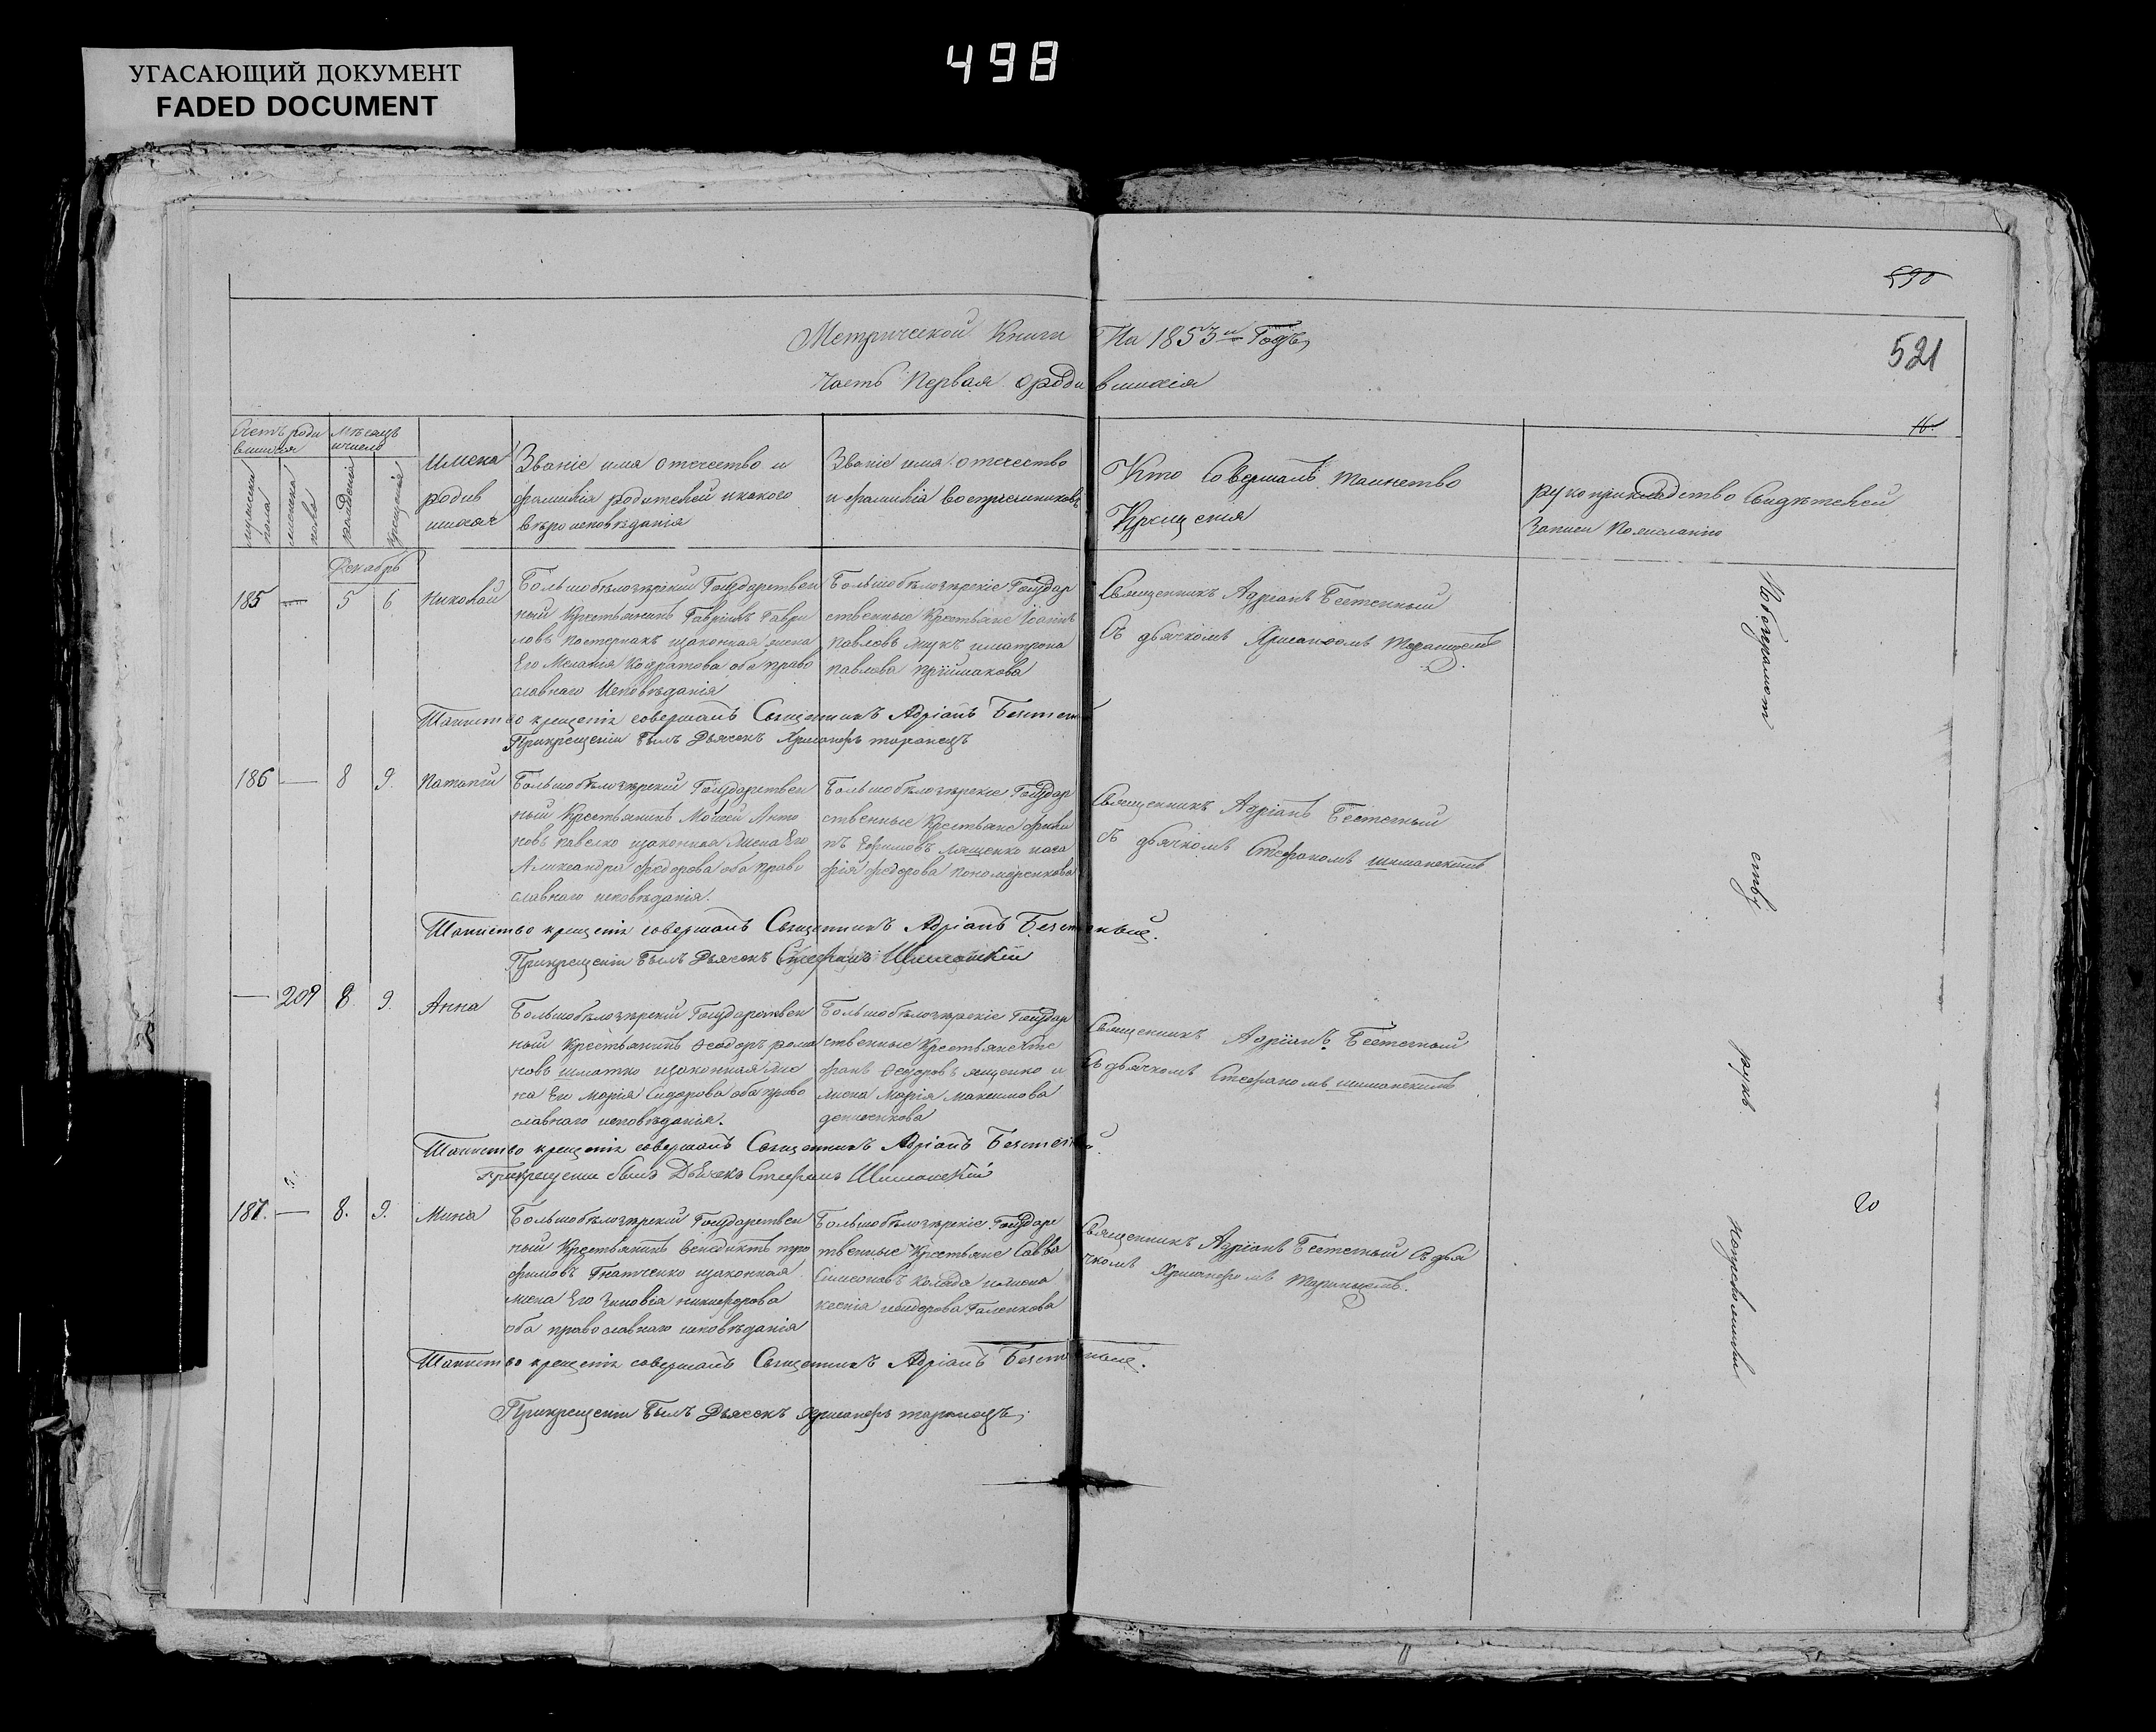 УГАСАЮЩИЙ ДОКУМЕНТ
FADED DOCUMENT
498
590
Метрической Книги На 1853й Годъ,
521
часть Первая о родившихся
16.
Счетъ роди
вшихся
Мѣсяцъ
ичисло
мужеска
пола
женска
пола
рожденія
крещенія
Имена
родив
шихся
Званіе имя отечество и
фамилія родителей икакого
вѣроисповѣданія
Званіе имя отечество
и фамилія воспріемниковъ
Кто Совершалъ таинство
Крещенія
рукоприкладство Свидѣтелей
Записи
Декабрь
185 — 5 6 Николай
Большобѣлозѣрскій Государствен
ный Крестьянинъ Гавріилъ Гаври
ловъ Пастернакъ изаконная жена
Его Меланія Кодратова оба право
славнаго Исповѣданія
Большобѣлозѣрскіе Государ
ственные Крестьяне Іоаннъ
Павловъ иматрона
Павлова Пріймакова
Священникъ Адріанъ
Съ дьячкомъ
Таинство крещенія совершалъ Священникъ Адріанъ
Прикрещеніи Былъ Дьячекъ
186 — 8 9. Потапій
Большобѣлозѣрскій Государствен
ный Крестьянинъ Моисей Анто
новъ Павелко изаконная Жена Его
Александра Федорова оба право
славнаго исповѣданія.
Большобѣлозѣрскіе Государ
ственные Крестьяне Фили
пъ Ефимовъ Лященко иага
фія Федорова Пономаренкова
Священникъ Адріанъ
съ дьячкомъ Стефаномъ Шиманскимъ
Таинство крещенія совершалъ Священникъ Адріанъ
Прикрещеніи Былъ Дьячекъ Стефанъ Шиманскій
— 209 8. 9. Анна
Большобѣлозѣрскій Государствен
ный Крестьянинъ Феодоръ рома
новъ шматко изаконная же
на Его Марія Сидорова оба право
славнаго исповѣданія.
Большобѣлозѣрскіе Государ
ственные Крестьяне Сте
фанъ Феодоровъ ященко и
жена Марія Максимова
Священникъ Адріанъ
Съ дьячкомъ Стефаномъ шиманскимъ
Таинство крещенія совершалъ Священникъ Адріанъ
Прикрещеніи былъ Дьячекъ Стефанъ Шиманскій
187. — 8. 9. Мина
Большобѣлозѣрскій Государствен
ный Крестьянинъ Венедиктъ тро
фимовъ Гнатченко изаконная
жена Его Зиновія никифорова
оба православнаго исповѣданія
Большобѣлозѣрскіе Государс
твенные Крестьяне Савва
Симеоновъ Коляда ижена
ксенія исидорова Галенкова
Священникъ Адріанъ Съ дья
чкомъ
Таинство крещенія совершалъ Священникъ Адріанъ
Прикрещеніи Былъ Дьячекъ
20